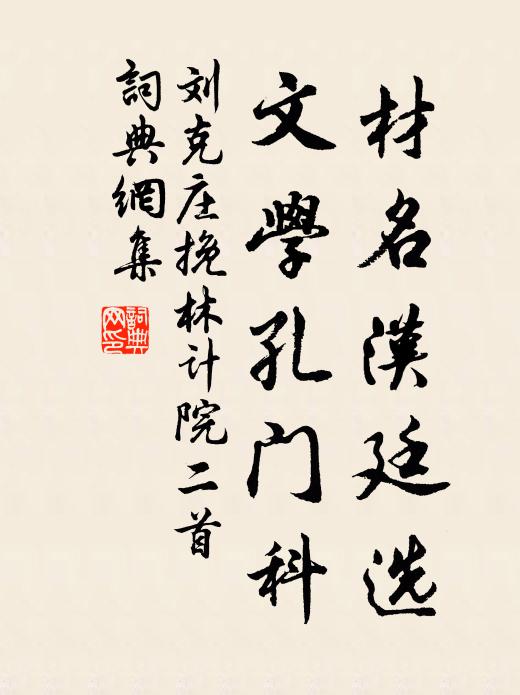 材名漢廷选
文學孔门科
刘克庄挽林计院二首
詞典網集
詞典网印